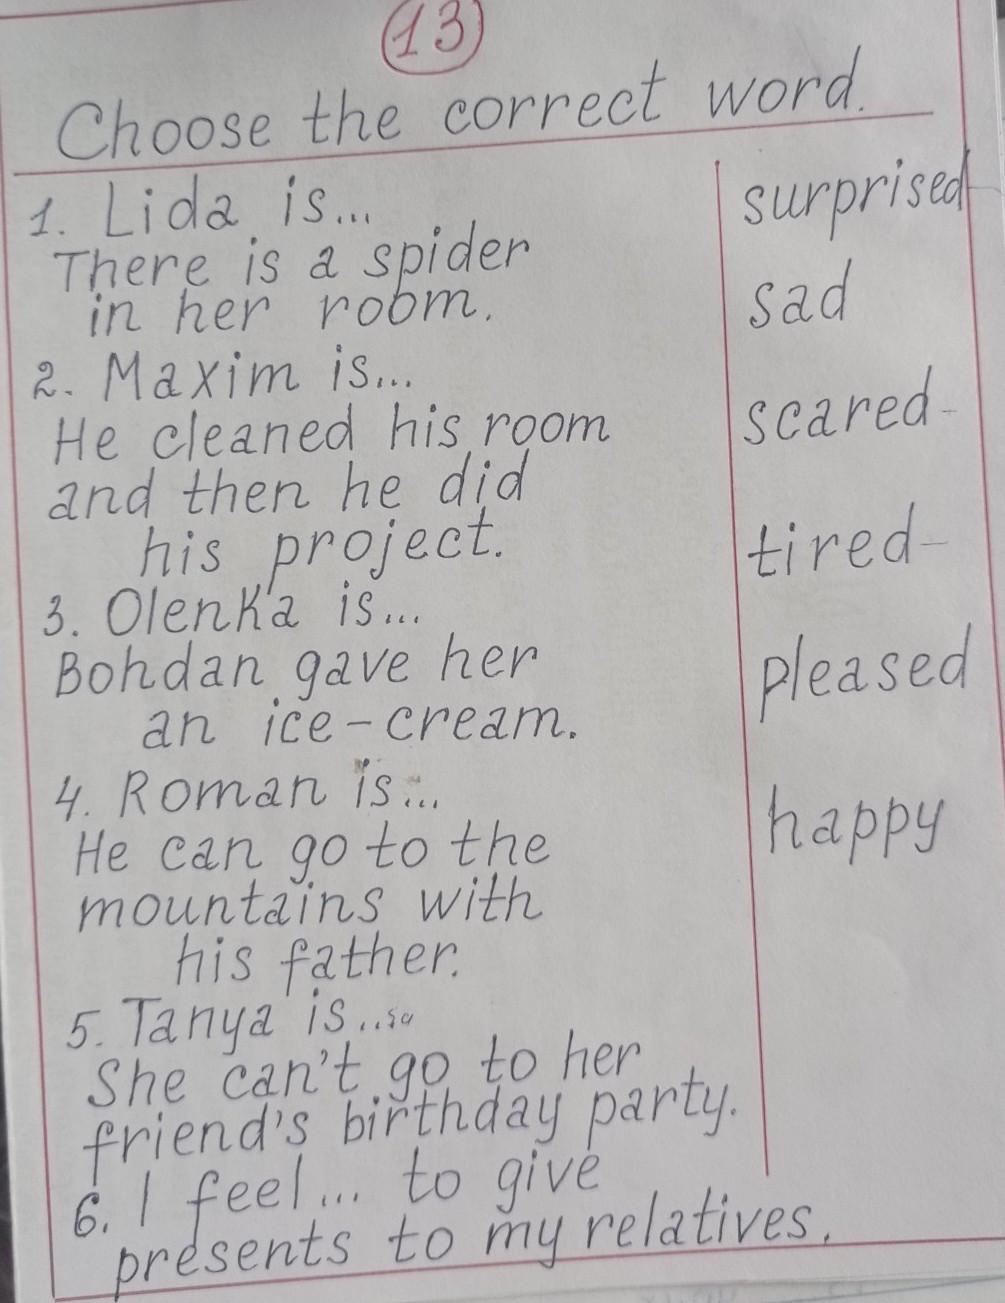 13
Choose the correct word.
1. Lida is...
There is a spider
in her room.
2. Maxim is...
He cleaned his room
and then he did
his project.
3. Olenka is...
Bohdan gave her
an ice-cream.
4. Roman is...
He can go to the
mountains with
his father.
5. Tanya is...sa
She can't go to her
friend's birthday party.
6. I feel... to give
presents to my relatives.
surprised
sad
scared -
tired -
pleased
happy